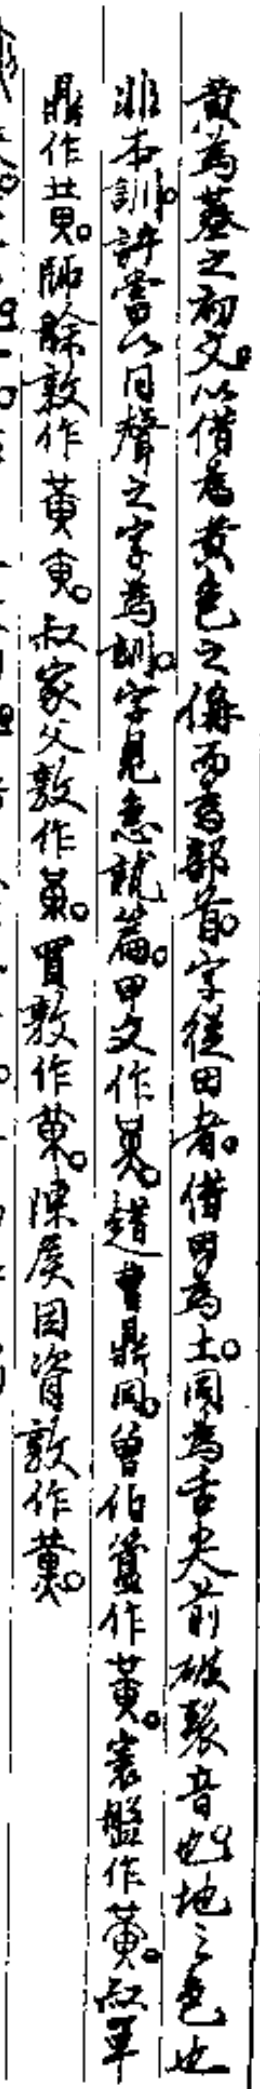 黄為蓋之初文。以借為黄色之偁而為部首。字從田者。借田為土。同為舌尖前破裂音也。地之色也
非本訓。許當以同聲之字為訓。字見急就篇。甲文作。趞曹鼎同。曾伯簠作黄。寰盤作黄。叔單
鼎作黄。師艅敦作黄。叔家父敦作黄。買敦作黄。陳侯因資敦作黄。